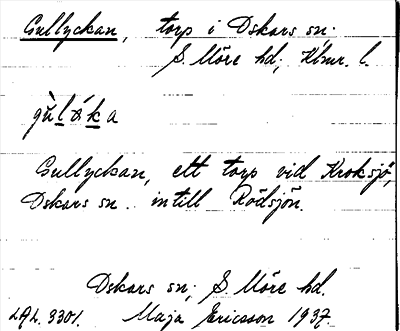 Gullyckan, torp i Oskars sn;
S. Möre hd; Klmr. l.
gùlákа
Gullyckan, ett torp vid Kroksjö,
Oskars sn. intill Rödsjön.
Oskars sn; S. Möre hd.
LAL. 3301. Maja Ericsson 1937.